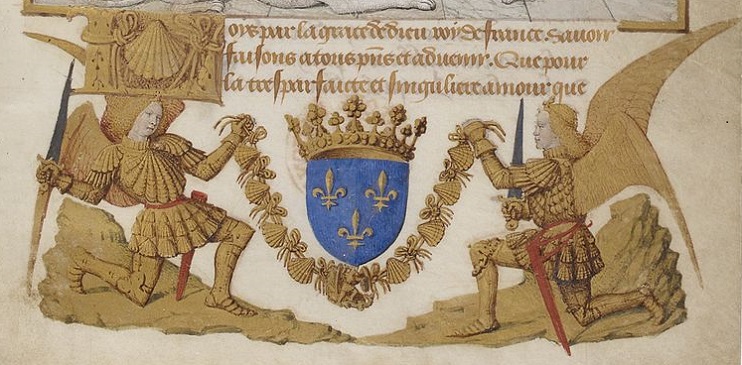 Loys par la grace de dieu roy de france Savoir
faisons a tous pñs et advenir. Que pour
la tresparfaicte et singuliere amour que